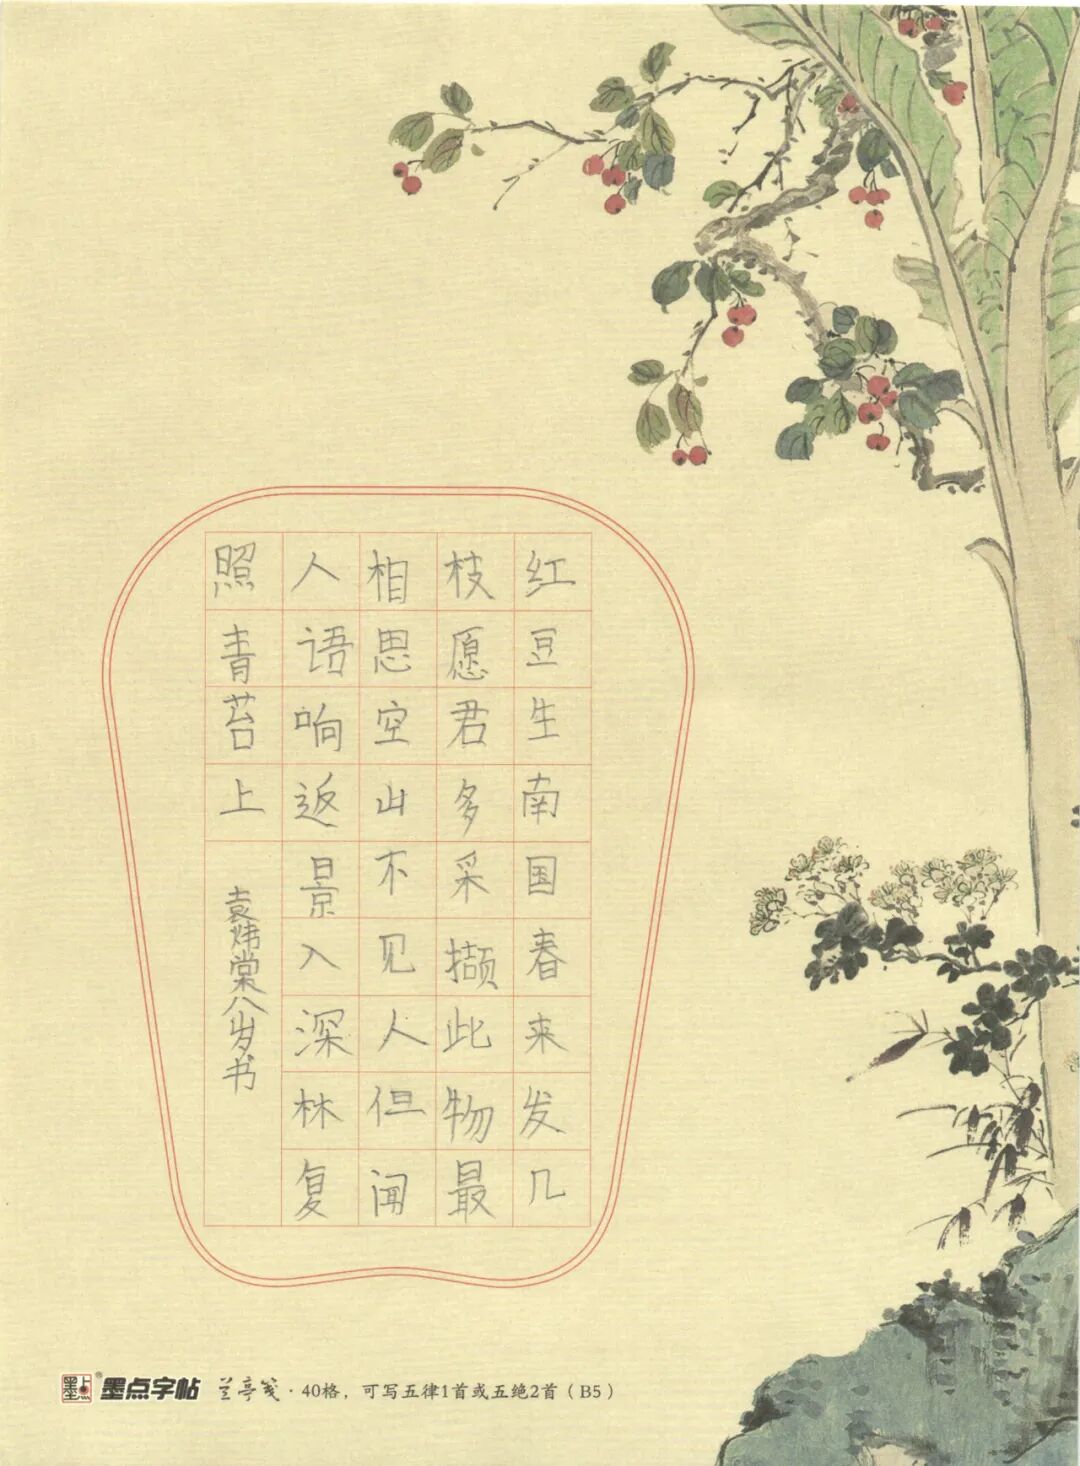 红豆生南国春来发几
枝愿君多采撷此物最
相思空山不见人但闻
人语响返景入深林复
照青苔上
袁炜棠八岁书
墨点 墨点字帖 兰亭笺·40格，可写五律1首或五绝2首（B5）